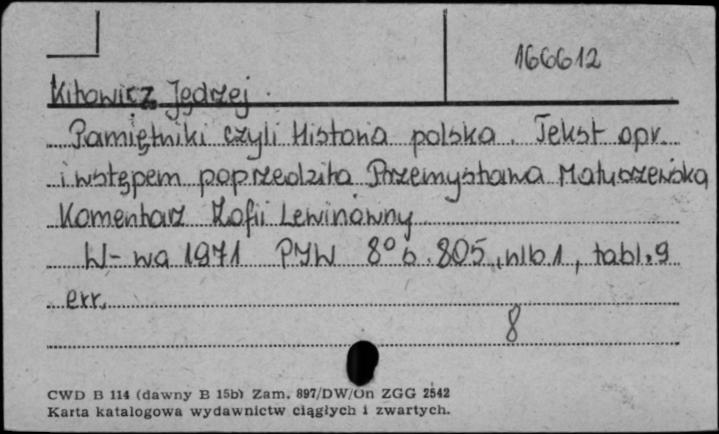 166612
Kitowicz Jędrzej.
Pamiętniki czyli Historia polska. Tekst opr.
i wstępem poprzedziła Przemysława Matuszewska
Komentarz Zofii Lewinówny
W-wa 1971 PIW 8° s. 805, nlb. 1, tabl. 9
err.
8
CWD B 114 (dawny B 15b) Zam. 897/DW/On ZGG 2542
Karta katalogowa wydawnictw ciągłych i zwartych.